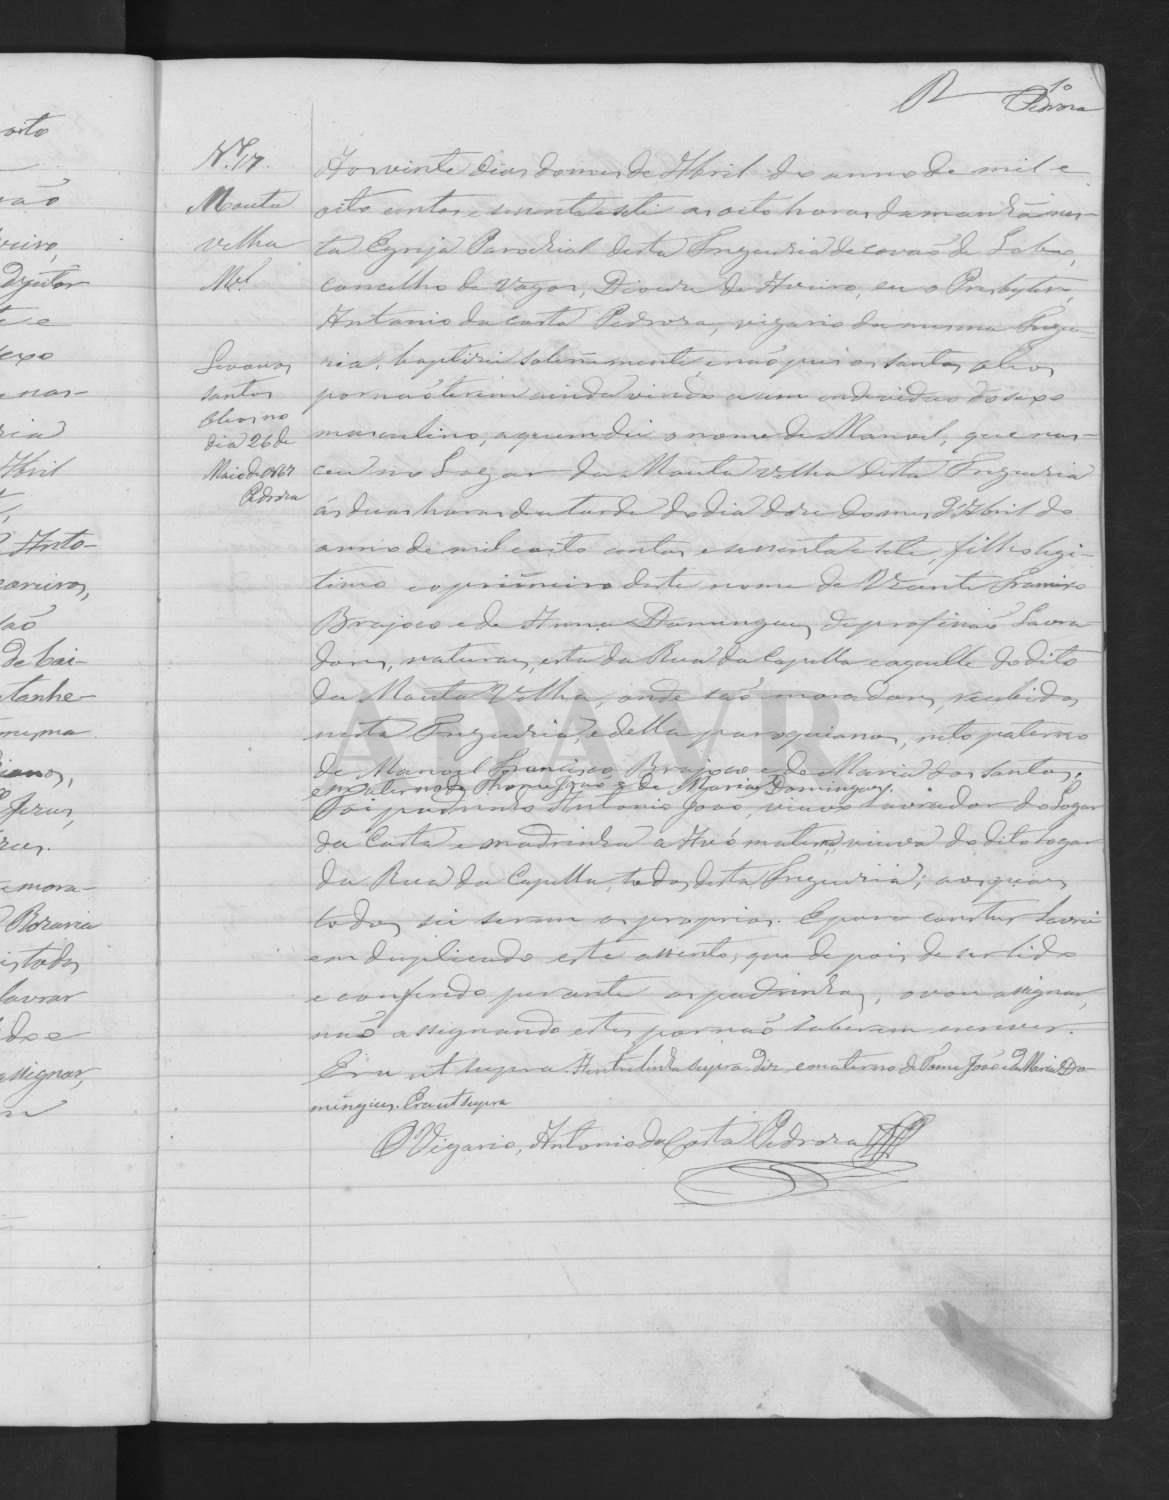 10
Pedroza
N.º 17.
Mouta
velha
Mel
Levou os
santos
oleos no
dia 26 de
Maio de 1867
Pedroza
Aos vinte dias do mes de Abril do anno de mil e
oito centos e sesenta e sete as oito horas da manhã nes-
ta Egreja Parochial desta Freguezia de covaõ do Lobo,
concelho de Vagos, Diocese de Aveiro, eu o Presbytero,
Antonio da costa Pedroza, vigario da mesma Fregue-
zia, baptizei solemnemente, e naõ puz os santos oleos
por naõ terem ainda vindo a um individuo do sexo
masculino, a quem dei o nome de Manoel, que nas-
ceu no Logar da Mouta velha desta Freguezia
ás duas horas da tarde do dia doze do mes d'Abril do
anno de mil e oito centos e sesenta e sete, filho legi-
timo e o primeiro deste nome de Vicente Francisco
Brojoco e de Anna Domingues, de profissaõ Lavra-
dores, naturaes, esta da Rua da Capella e aquelle do dito
da Mouta Velha, onde saõ moradores, recebidos
nesta Freguezia, e della paroquianos, neto paterno
de Manoel Francisco Brojoco e de Maria dos Santos,
e materno de Thome Joaõ e de Maria Domingues.
Foi padrinho Antonio Joaõ, viuvo Lavrador do Logar
da Costa e madrinha a Avó materna viuva do dito logar
da Rua da Capella, todos desta Freguezia; aos quaes
todos sei serem os proprios. E para constar lavrei
em duplicado este assento, que depois de ser lido
e conferido perante os padrinhos, o vou assignar,
naõ assignando estes por naõ saberem escrever.
Era ut supra. A entrelinha supra diz, e materno de Tome Joaõ e de Maria Do-
mingues. Era ut supra
O Vigario, Antonio da Costa Pedroza
ADAVR